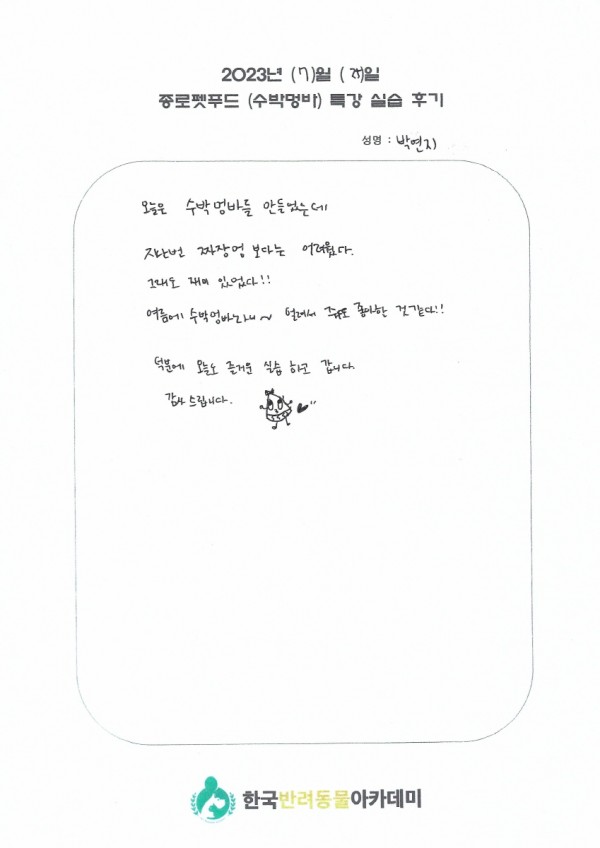 2023년 (7)월 ( )일
종로펫푸드 (수박멍바) 특강 실습 후기
성명 : 박연지
오늘은 수박멍바를 만들었는데
지난번 짜장멍 보다는 어려웠다.
그래도 재미 있었다!!
여름에 수박멍바라니~ 멍래서 좋아한 것같다!!
덕분에 오늘도 즐거운 실습 하고 갑니다.
감사드립니다.
한국반려동물아카데미